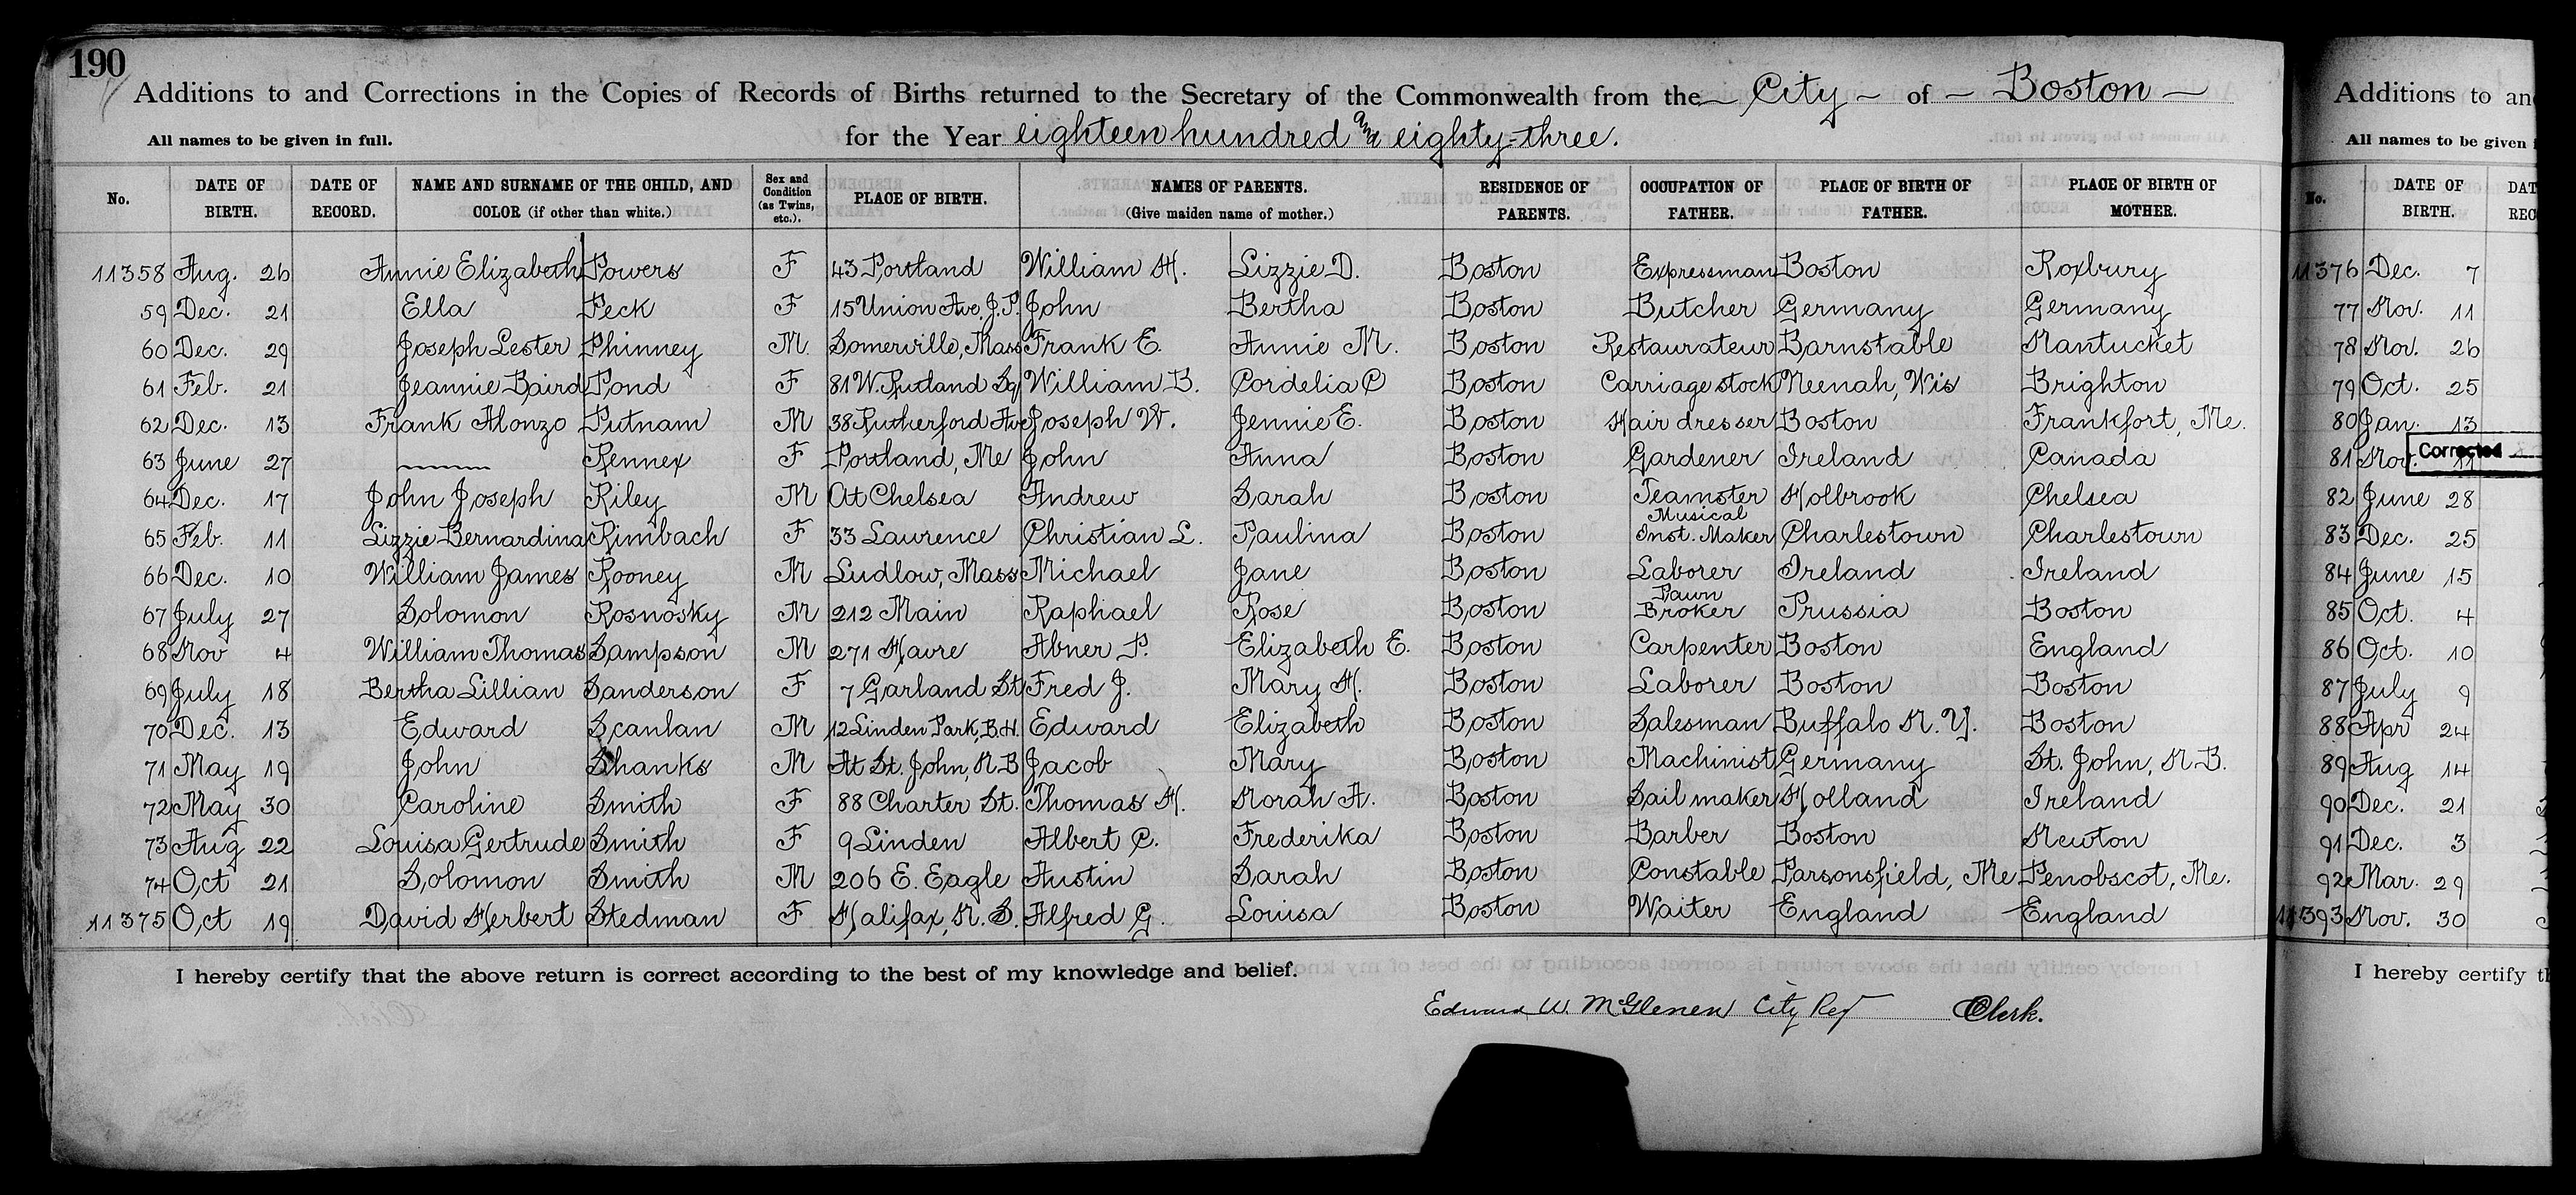 190
Additions to and Corrections in the Copies of Records of Births returned to the Secretary of the Commonwealth from the City of Boston
All names to be given in full.
for the Year eighteen hundred and eighty-three.
No. DATE OF BIRTH. DATE OF RECORD. NAME AND SURNAME OF THE CHILD, AND COLOR (if other than white.) Sex and Condition (as Twins, etc.). PLACE OF BIRTH. NAMES OF PARENTS. (Give maiden name of mother.) RESIDENCE OF PARENTS. OCCUPATION OF FATHER. PLACE OF BIRTH OF FATHER. PLACE OF BIRTH OF MOTHER.
11358 Aug. 26 Annie Elizabeth Powers F 43 Portland William H. Lizzie D. Boston Expressman Boston Roxbury
59 Dec. 21 Ella Peck F 15 Union Ave, J.P. John Bertha Boston Butcher Germany Germany
60 Dec. 29 Joseph Lester Phinney M. Somerville, Mass Frank E. Annie M. Boston Restaurateur Barnstable Nantucket
61 Feb. 21 Jeannie Baird Pond F 81 W. Rutland Sq William B. Cordelia C Boston Carriage stock Neenah, Wis Brighton
62 Dec. 13 Frank Alonzo Putnam M 38 Rutherford Ave Joseph W. Jennie E. Boston Hair dresser Boston Frankfort, Me.
63 June 27 Rennex F Portland, Me John Anna Boston Gardener Ireland Canada
64 Dec. 17 John Joseph Riley M At Chelsea Andrew Sarah Boston Teamster Holbrook Chelsea
65 Feb. 11 Lizzie Bernardina Rimbach F 33 Laurence Christian L. Paulina Boston Musical Inst. Maker Charlestown Charlestown
66 Dec. 10 William James Rooney M Ludlow, Mass Michael Jane Boston Laborer Ireland Ireland
67 July 27 Solomon Rosnosky M 212 Main Raphael Rose Boston Pawn Broker Prussia Boston
68 Nov 4 William Thomas Sampson M 271 Havre Abner P. Elizabeth E. Boston Carpenter Boston England
69 July 18 Bertha Lillian Sanderson F 7 Garland St Fred J. Mary H. Boston Laborer Boston Boston
70 Dec. 13 Edward Scanlan M 12 Linden Park, B.H. Edward Elizabeth Boston Salesman Buffalo N.Y. Boston
71 May 19 John Shanks M At St. John, N.B Jacob Mary Boston Machinist Germany St. John, N.B.
72 May 30 Caroline Smith F 88 Charter St. Thomas H. Norah A. Boston Sail maker Holland Ireland
73 Aug 22 Louisa Gertrude Smith F 9 Linden Albert C. Frederika Boston Barber Boston Newton
74 Oct 21 Solomon Smith M 206 E. Eagle Austin Sarah Boston Constable Parsonsfield, Me. Penobscot, Me.
11375 Oct 19 David Herbert Stedman F Halifax, N.S. Alfred G. Louisa Boston Waiter England England
I hereby certify that the above return is correct according to the best of my knowledge and belief.
Edward W. McGlenen City Reg Clerk.
Additions to an
All names to be given i
No. DATE OF BIRTH. DAT RECO
11376 Dec. 7
77 Nov. 11
78 Nov. 26
79 Oct. 25
80 Jan. 13
81 Nov. 11 Corrected
82 June 28
83 Dec. 25
84 June 15
85 Oct. 4
86 Oct. 10
87 July 9
88 Apr 24
89 Aug 14
90 Dec. 21
91 Dec. 3
92 Mar. 29
11393 Nov. 30
I hereby certify th